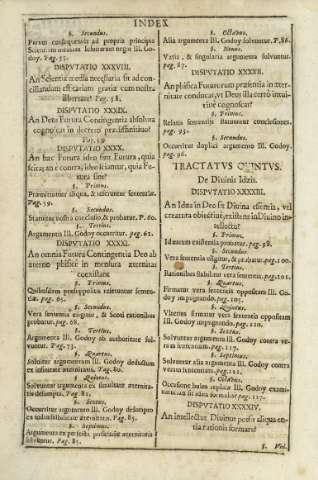 INDEX
§. Secundus.
Forum consequentia ad propria principia
Scientiæ mediæ solvuntur argu. Ill. Go-
doy. Pag. 55.
DISPVTATIO XXXVIII.
An Scientia media necessaria sit ad con-
ciliandum efficaciam gratiæ cum nostra
libertate? Pag. 58.
DISPVTATIO XXXIX.
An Detur Futura Contingentia absoluta
cognoscat in decreto præfinitivo?
Pag. 59.
DISPVTATIO XXXX.
An hæc Futura ideo sint Futura, quia
sciat, an è contra, ideo sciantur, quia Fu-
tura sint?
§. Primus.
Præmittuntur aliqua, & referuntur sententiæ.
Pag. 59.
§. Secundus.
Statuitur nostra conclusio, & probatur. P. 60.
§. Tertius.
Argumenta Ill. Godoy occurritur. pag. 62.
DISPVTATIO XXXXI.
An omnia Futura Contingentia Deo ab
æterno phisicè in mensura æternitatis
coexistant?
§. Primus.
Quibusdam præsuppositis referuntur senten-
tiæ. pag. 65.
§. Secundus.
Vera sententia eligitur, & Scoti rationibus
probatur. pag. 68.
§. Tertius.
Argumenta Ill. Godoy ab authoritate sol-
vuntur. Pag. 73.
§. Quartus.
Solvitur argumentum Ill. Godoy deductum
ex infinitate æternitatis. Pag. 80.
§. Quintus.
Solvuntur argumenta ex simultate æternita-
tis desumpta. Pag. 82.
§. Sextus.
Occurritur argumentis Ill. Godoy desumptis
ex indivisibilitate æternitatis. Pag. 85.
§. Septimus.
Argumenta ex perfecta possessione æternitatis
solvuntur. Pag. 85.
§. Octavus.
Alia argumenta Ill. Godoy solvuntur. P. 86.
§. Nonus.
Varia, & singularia argumenta solvuntur.
pag. 87.
DISPVTATIO XXXXII.
An phisica Futurorum præsentia in æter-
nitate conducat, ut Deus illa certò intui-
tivè cognoscat?
§. Primus.
Relatis sententiis statuuntur conclusiones.
pag. 93.
§. Secundus.
Occurritur duplici argumento Ill. Godoy.
pag. 96.
TRACTATVS QVINTVS.
De Divinis Ideis.
DISPVTATIO XXXXIII.
An Idea in Deo sit Divina essentia, vel
creatura obiectivè existens in Divino in-
tellectu?
§. Primus.
Idearum existentia probatur. pag. 98.
§. Secundus.
Vera sententia eligitur, & probatur. pag. 100.
§. Tertius.
Rationibus stabilitur vera sententia. pag. 101.
§. Quartus.
Firmatur vera sententia oppositam Ill. Go-
doy impugnando. pag. 105.
§. Quintus.
Ulterius firmatur vera sententia oppositam
Ill. Godoy impugnando. pag. 110.
§. Sextus.
Solvuntur argumenta Ill. Godoy contra ve-
ram sententiam. pag. 117.
§. Septimus.
Solvuntur alia argumenta Ill. Godoy contra
veram sententiam. pag. 121.
§. Octavus.
Occasione huius replicæ Ill. Godoy exami-
natur an sit idea formalis? pag. 127.
DISPVTATIO XXXXIV.
An intellectus Divinus possit aliqua en-
tia rationis formare?
§. Vni.